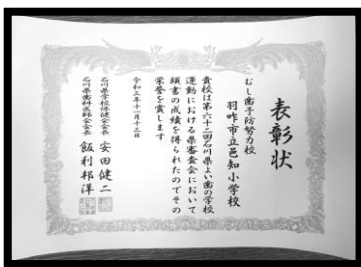 表彰状
むし歯予防努力校
羽咋市立邑知小学校
貴校は第六十二回石川県よい歯の学校
運動における県審査会において
頭書の成績を得られたのでその
栄誉を賞します
令和三年十一月十三日
石川県学校保健会会長 安田健二
石川県歯科医師会会長 飯利邦洋